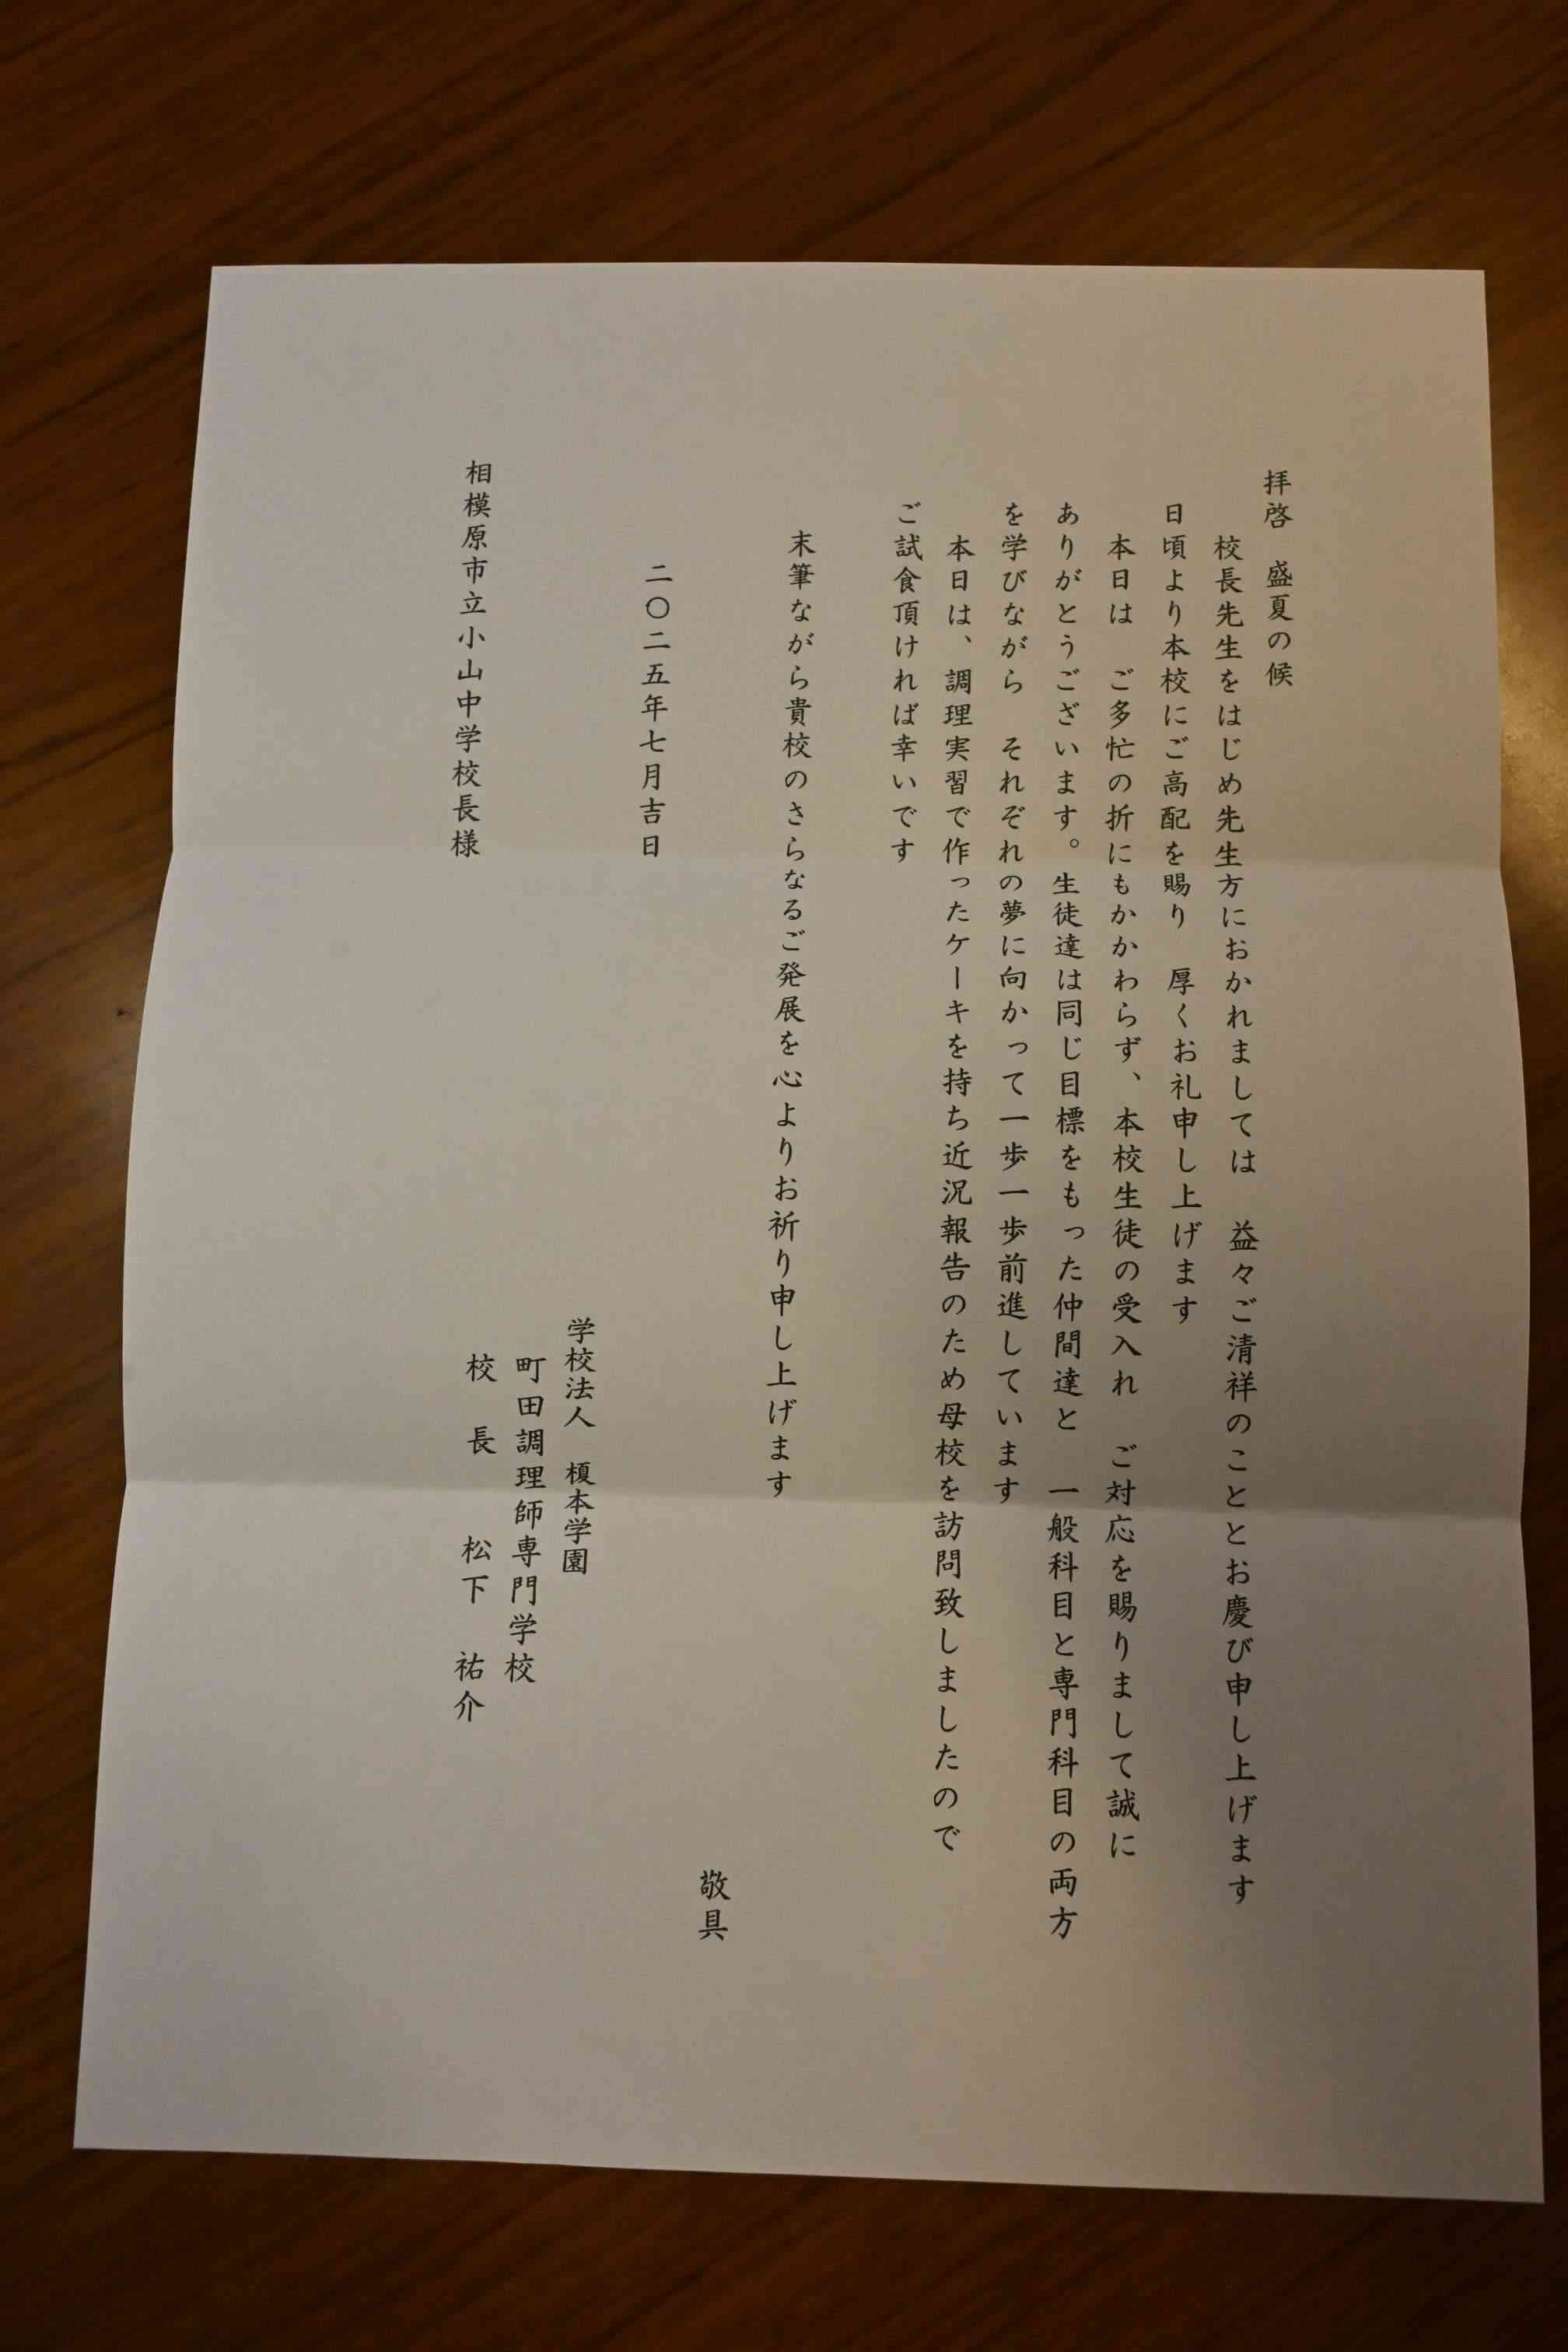 拝啓　盛夏の候
校長先生をはじめ先生方におかれましては　益々ご清祥のこととお慶び申し上げます
日頃より本校にご高配を賜り　厚くお礼申し上げます
本日は　ご多忙の折にもかかわらず、本校生徒の受入れ　ご対応を賜りまして誠に
ありがとうございます。生徒達は同じ目標をもった仲間達と　一般科目と専門科目の両方
を学びながら　それぞれの夢に向かって一歩一歩前進しています
本日は、調理実習で作ったケーキを持ち近況報告のため母校を訪問致しましたので
ご試食頂ければ幸いです
末筆ながら貴校のさらなるご発展を心よりお祈り申し上げます
敬具
二〇二五年七月吉日
学校法人　榎本学園
町田調理師専門学校
校　長　　松下　祐介
相模原市立小山中学校長様